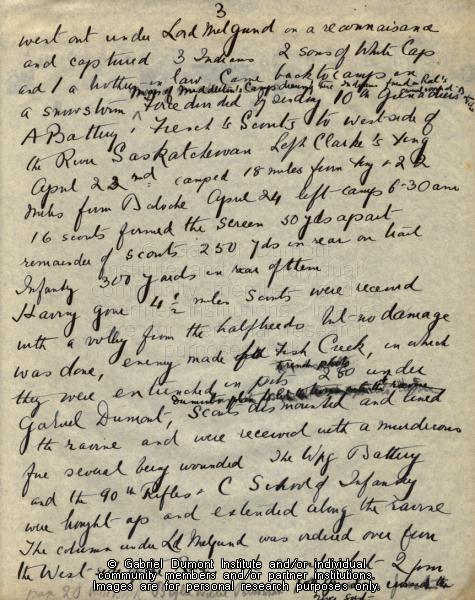 3
went out under Lord Melgund on a reconnaisance
and captured 3 Indians 2 sons of White Cap
and 1 a brother in law Came back to camp in
a snowstorm Force divided by sending 10th Grenadiers
A Battery & French's Scouts to west side of
the River Saskatchewan Left Clarke's Xing
April 22nd camped 18 miles from Xing & 22
miles from Batoche April 24 left camp 6-30 am
16 scouts formed the screen 50 yds apart
remainder of scouts 250 yds in rear on trail
Infantry 300 yards in rear of them
Having gone 4½ miles Scouts were received
with a volley from the halfbreeds but no damage
was done, enemy made for Fish Creek, in which
they were entrenched in pits 280 under
Gabriel Dumont, Scouts dismounted and lined
the ravine and were received with a murderous
fire several being wounded The Wpg Battery
and the 90th Rifles & C School of Infantry
were brought up and extended along the ravine
The column under Ld Melgund was ordered over from
the West 2 pm
© Gabriel Dumont Institute and/or individual
community members and/or partner institutions.
Images are for personal research purposes only.